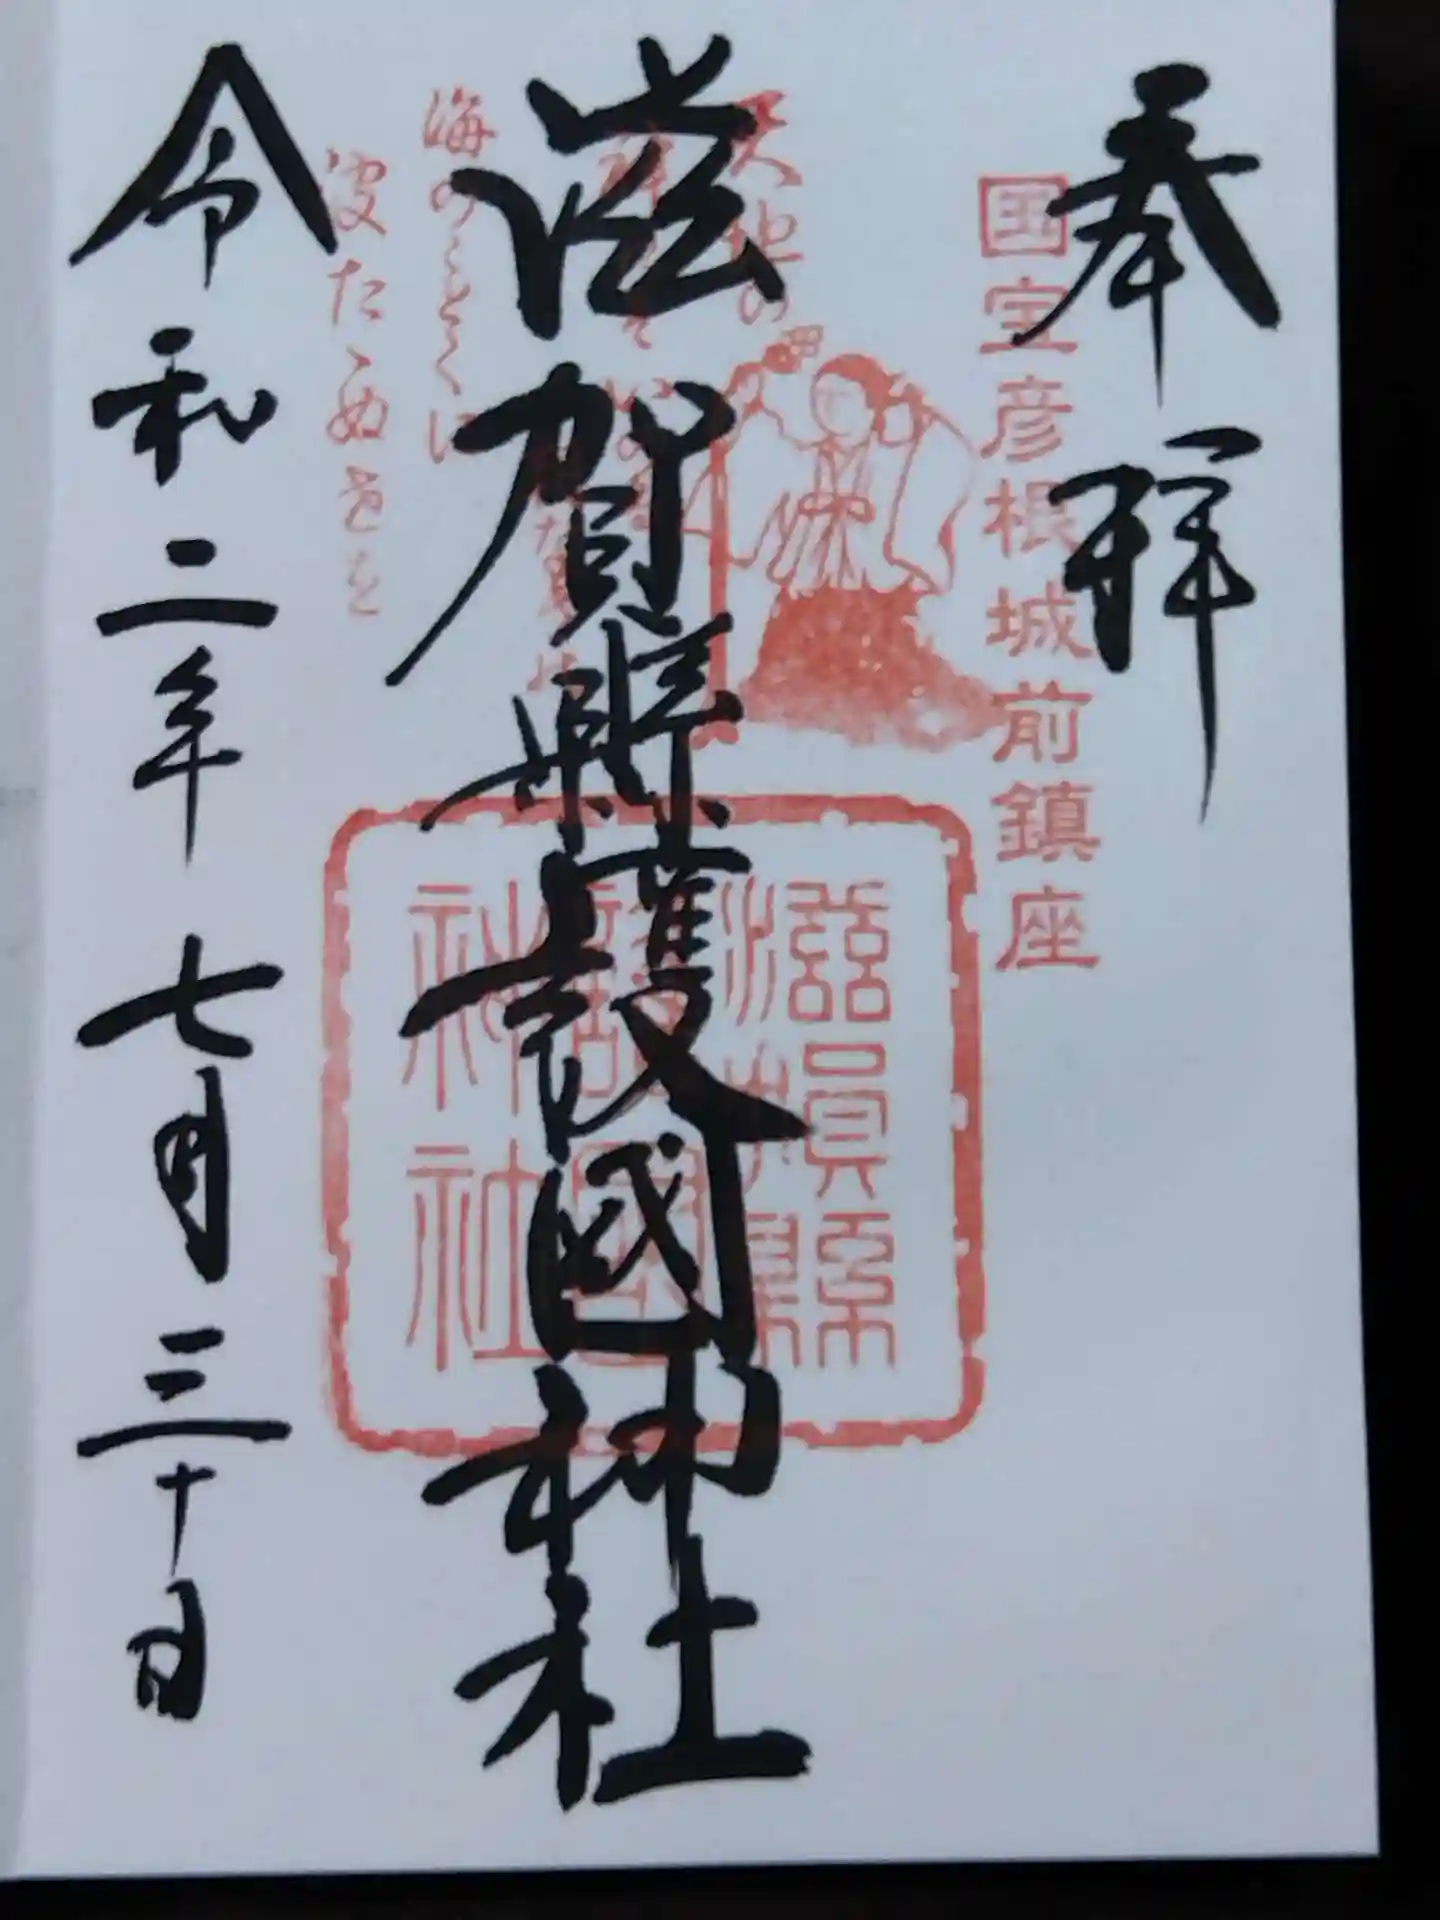 奉拝
国宝彦根城前鎮座
天地の
海のことくに
波たゝぬ世を
滋賀縣護國神社
滋賀縣
護國
神社
令和二年 七月三十日